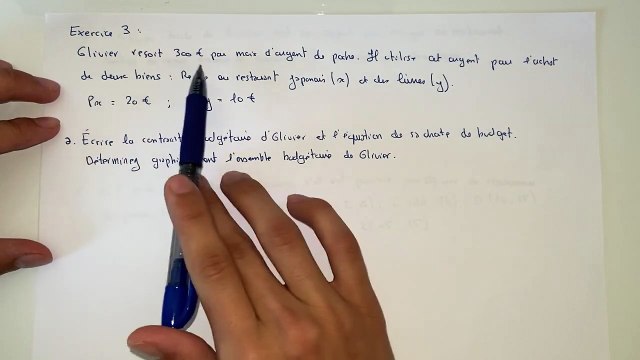 Exercice 3 :
Olivier reçoit 300 € par mois d'argent de poche. Il utilise cet argent pour l'achat
de deux biens : au restaurant japonais (x) et des livres (y).
Px = 20 € ; y = 10 €
2. Écrire la contrainte budgétaire d'Olivier et l'équation de sa droite de budget.
Déterminez l'ensemble budgétaire de Olivier.